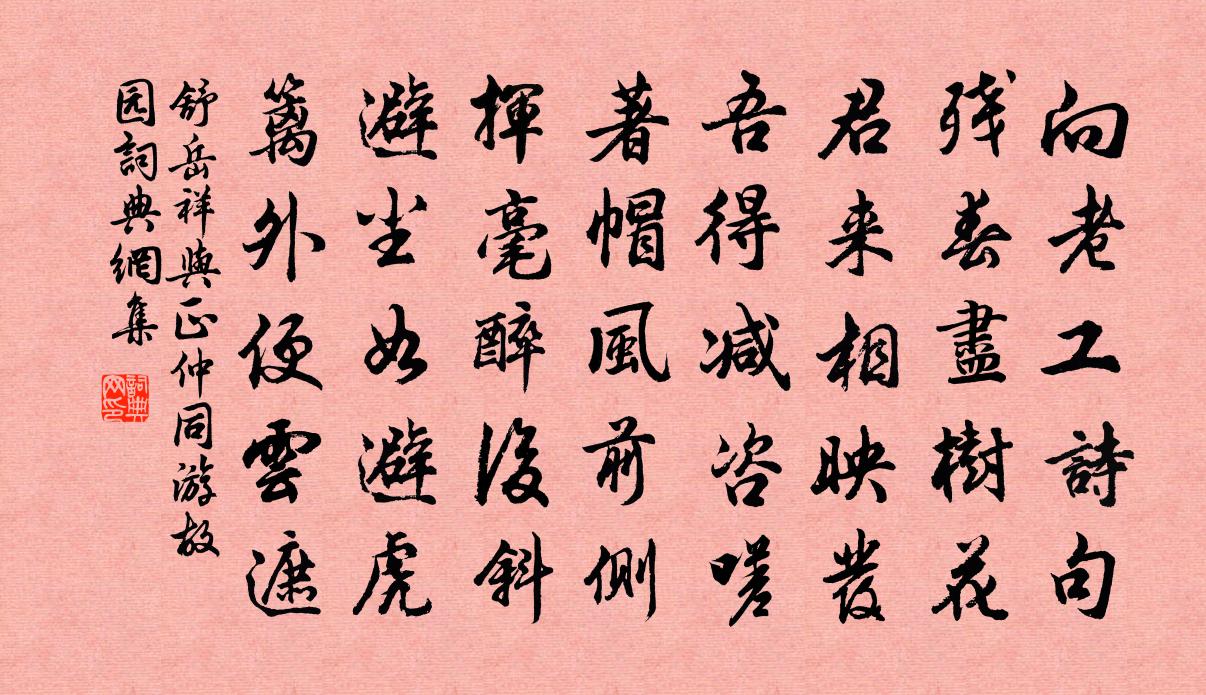 向老工詩句
残春盡樹花
君来相映發
吾得減咨嗟
著帽風前側
揮毫醉後斜
避尘如避虎
篱外便雲遮
舒岳祥與正仲同游故
园詞典網集
詞典網印